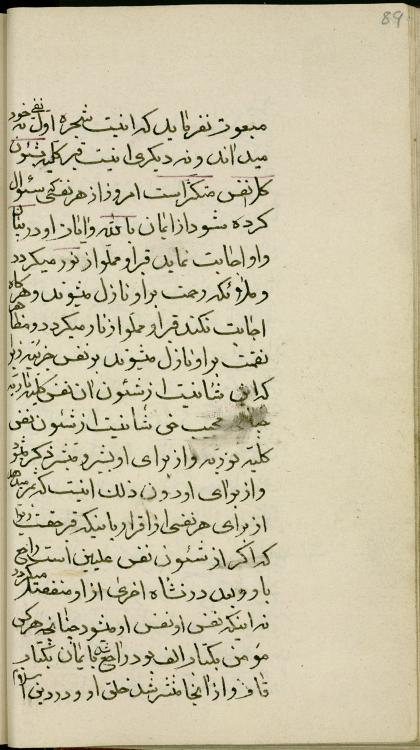 89
مبعوث نفرمايد كه اينست شجره اول نه نفى خود
ميداند و نه ديگرى اينست قبر كليه شئون
كل نفس متكثر است امروز از هر نفسى كه سئوال
كرده شود از ايمان بالله و آيات او در بيان
و او اجابت نمايد قبر او مملو از نور ميگردد
و ملائكه رحمت بر او نازل ميشوند و هرگاه
اجابت نكند قبر او مملو از نار ميگردد و مظاهر
نقمت بر او نازل ميشوند بر نفس جزئيه زيرا
كه اين شأنيست از شئون آن نفس كليه ناريه
محجب فى شأنيست از شئون نفس
كليه نوريه و از براى او بشر و منشر ذكر نمود
و از براى او دون ذلك اينست كه ثمر ميدهد
از براى هر نفسى اذا اقرار باينكه قبر حقست زيرا
كه اگر از شئون نفس عليين است راجع
باو و بدن در نشأه اخرى از او منفعتله ميگردد
نه اينكه نفس او نفس او ميشود چنانچه هر كس
مؤمن بكتاب الف بود راجع شد بايمان بكتاب
قاف و از آنجا منشر شد خلق او و در دين اسلام